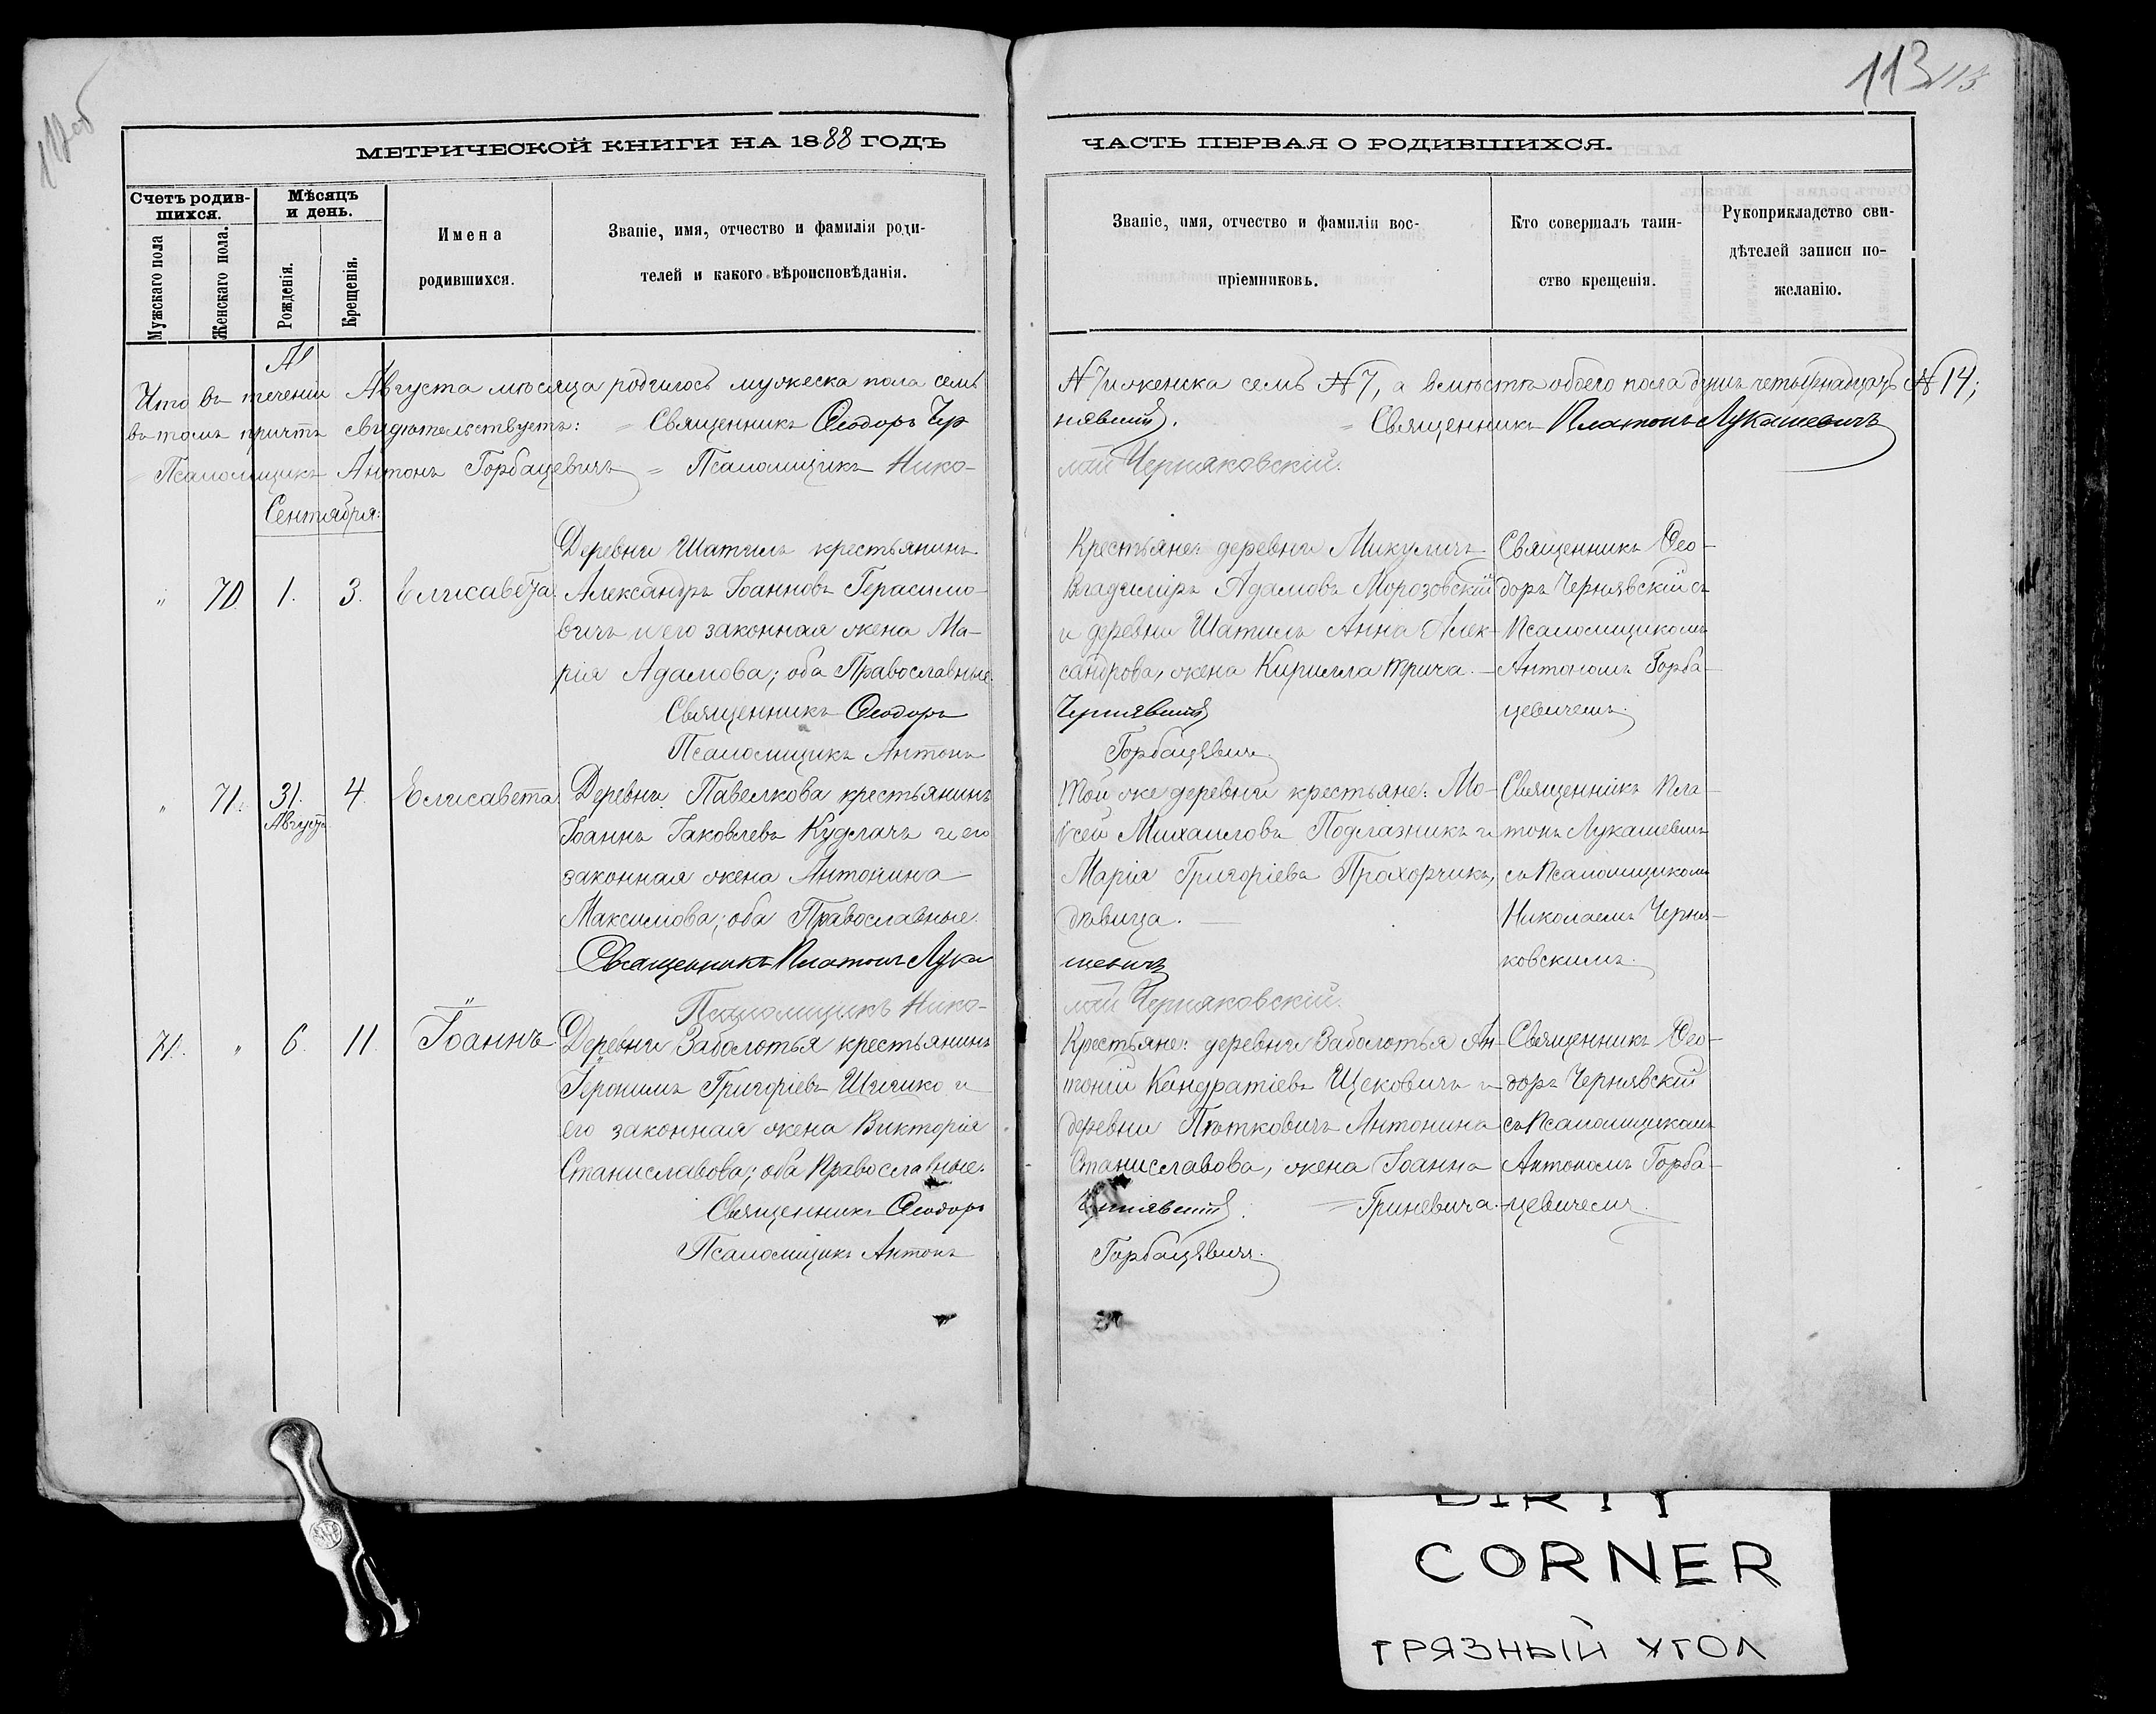 113
МЕТРИЧЕСКОЙ КНИГИ НА 1888 ГОДЪ
ЧАСТЬ ПЕРВАЯ О РОДИВШИХСЯ.
Счетъ родив-
шихся.
Мужскаго пола
Женскаго пола.
Мѣсяцъ
и день.
Рожденія.
Крещенія.
Имена
родившихся.
Званіе, имя, отчество и фамилія роди-
телей и какого вѣроисповѣданія.
Званіе, имя, отчество и фамиліи вос-
пріемниковъ.
Кто совершалъ таин-
ство крещенія.
Рукоприкладство сви-
дѣтелей записи по-
желанію.
Что въ теченіи Августа мѣсяца родилось мужеска пола семь
№ 7 и женска семь № 7, а вмѣстѣ обоего пола душъ четырнадцать № 14;
въ томъ причтъ свидѣтельствуетъ: = Священникъ Ѳеодоръ Чер
нявскій. = Священникъ Платонъ Лукашевичъ
= Псаломщикъ Антонъ Горбацевичъ = Псаломщикъ Нико-
лай Черняковскій.
Сентября:
" 70. 1. 3. Елисавета.
Деревни Шатилъ крестьянинъ
Александръ Іоанновъ Герасимо-
вичъ и его законная жена Ма-
рія Адамова; оба Православные.
Священникъ Ѳеодоръ
Псаломщикъ Антонъ
Крестьяне: деревни Микуличъ
Владиміръ Адамовъ Морозовскій
и деревни Шатилъ Анна Алек-
сандрова, жена Кирилла Трича. —
Чернявскій
Горбацевичъ.
Священникъ Ѳео-
доръ Чернявскій съ
Псаломщикомъ
Антономъ Горба-
цевичемъ.
" 71. 31. Августа 4. Елисавета.
Деревни Павелкова крестьянинъ
Іоаннъ Іаковлевъ Кудлачъ и его
законная жена Антонина
Максимова; оба Православные.
Священникъ Платонъ Лука
Псаломщикъ Нико-
Той же деревни крестьяне: Мо-
ѵсей Михаиловъ Подлазникъ и
Марія Григоріева Прохорчикъ,
дѣвица. —
шевичъ
лай Черняковскій.
Священникъ Пла-
тонъ Лукашевичъ
съ Псаломщикомъ
Николаемъ Черня-
ковскимъ.
71. " 6. 11. Іоаннъ.
Деревни Заболотья крестьянинъ
Іеронимъ Григоріевъ Шишко и
его законная жена Викторія
Станиславова; оба Православные.
Священникъ Ѳеодоръ
Псаломщикъ Антонъ
Крестьяне: деревни Заболотья Ан-
тоній Кондратіевъ Щековичъ и
деревни Пѣтковичъ Антонина
Станиславова, жена Іоанна
Чернявскій. = Гриневича.
Горбацевичъ.
Священникъ Ѳео-
доръ Чернявскій
съ Псаломщикомъ
Антономъ Горба-
цевичемъ.
DIRTY
CORNER
ГРЯЗНЫЙ УГОЛ